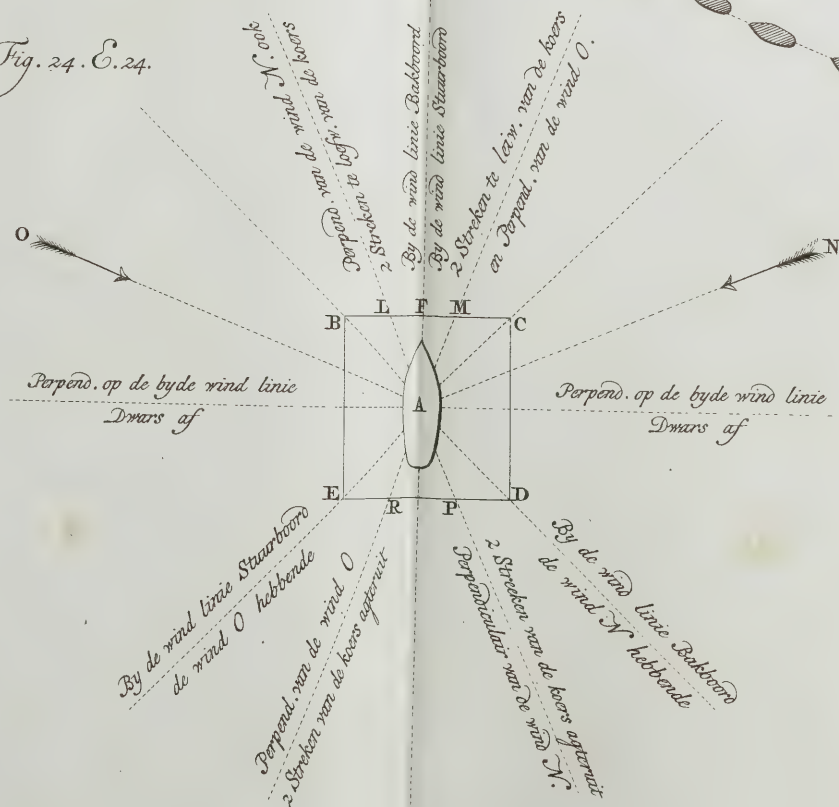 Fig. 24. E. 24.
Perpend. van de wind N. ook
2 Streken te loefw. van de koers
By de wind linie Bakboord
By de wind linie Stuurboord
2 Streken te leiw. van de koers
en Perpend. van de wind O.
O
N
B
L
F
M
C
Perpend. op de byde wind linie
Dwars af
A
Perpend. op de byde wind linie
Dwars af
E
R
P
D
By de wind linie Stuurboord
de wind O hebbende
Perpend. van de wind O
2 Streken van de koers agteruit
2 Streeken van de koers agteruit
Perpendiculair van de wind N.
By de wind linie Bakboord
de wind N hebbende